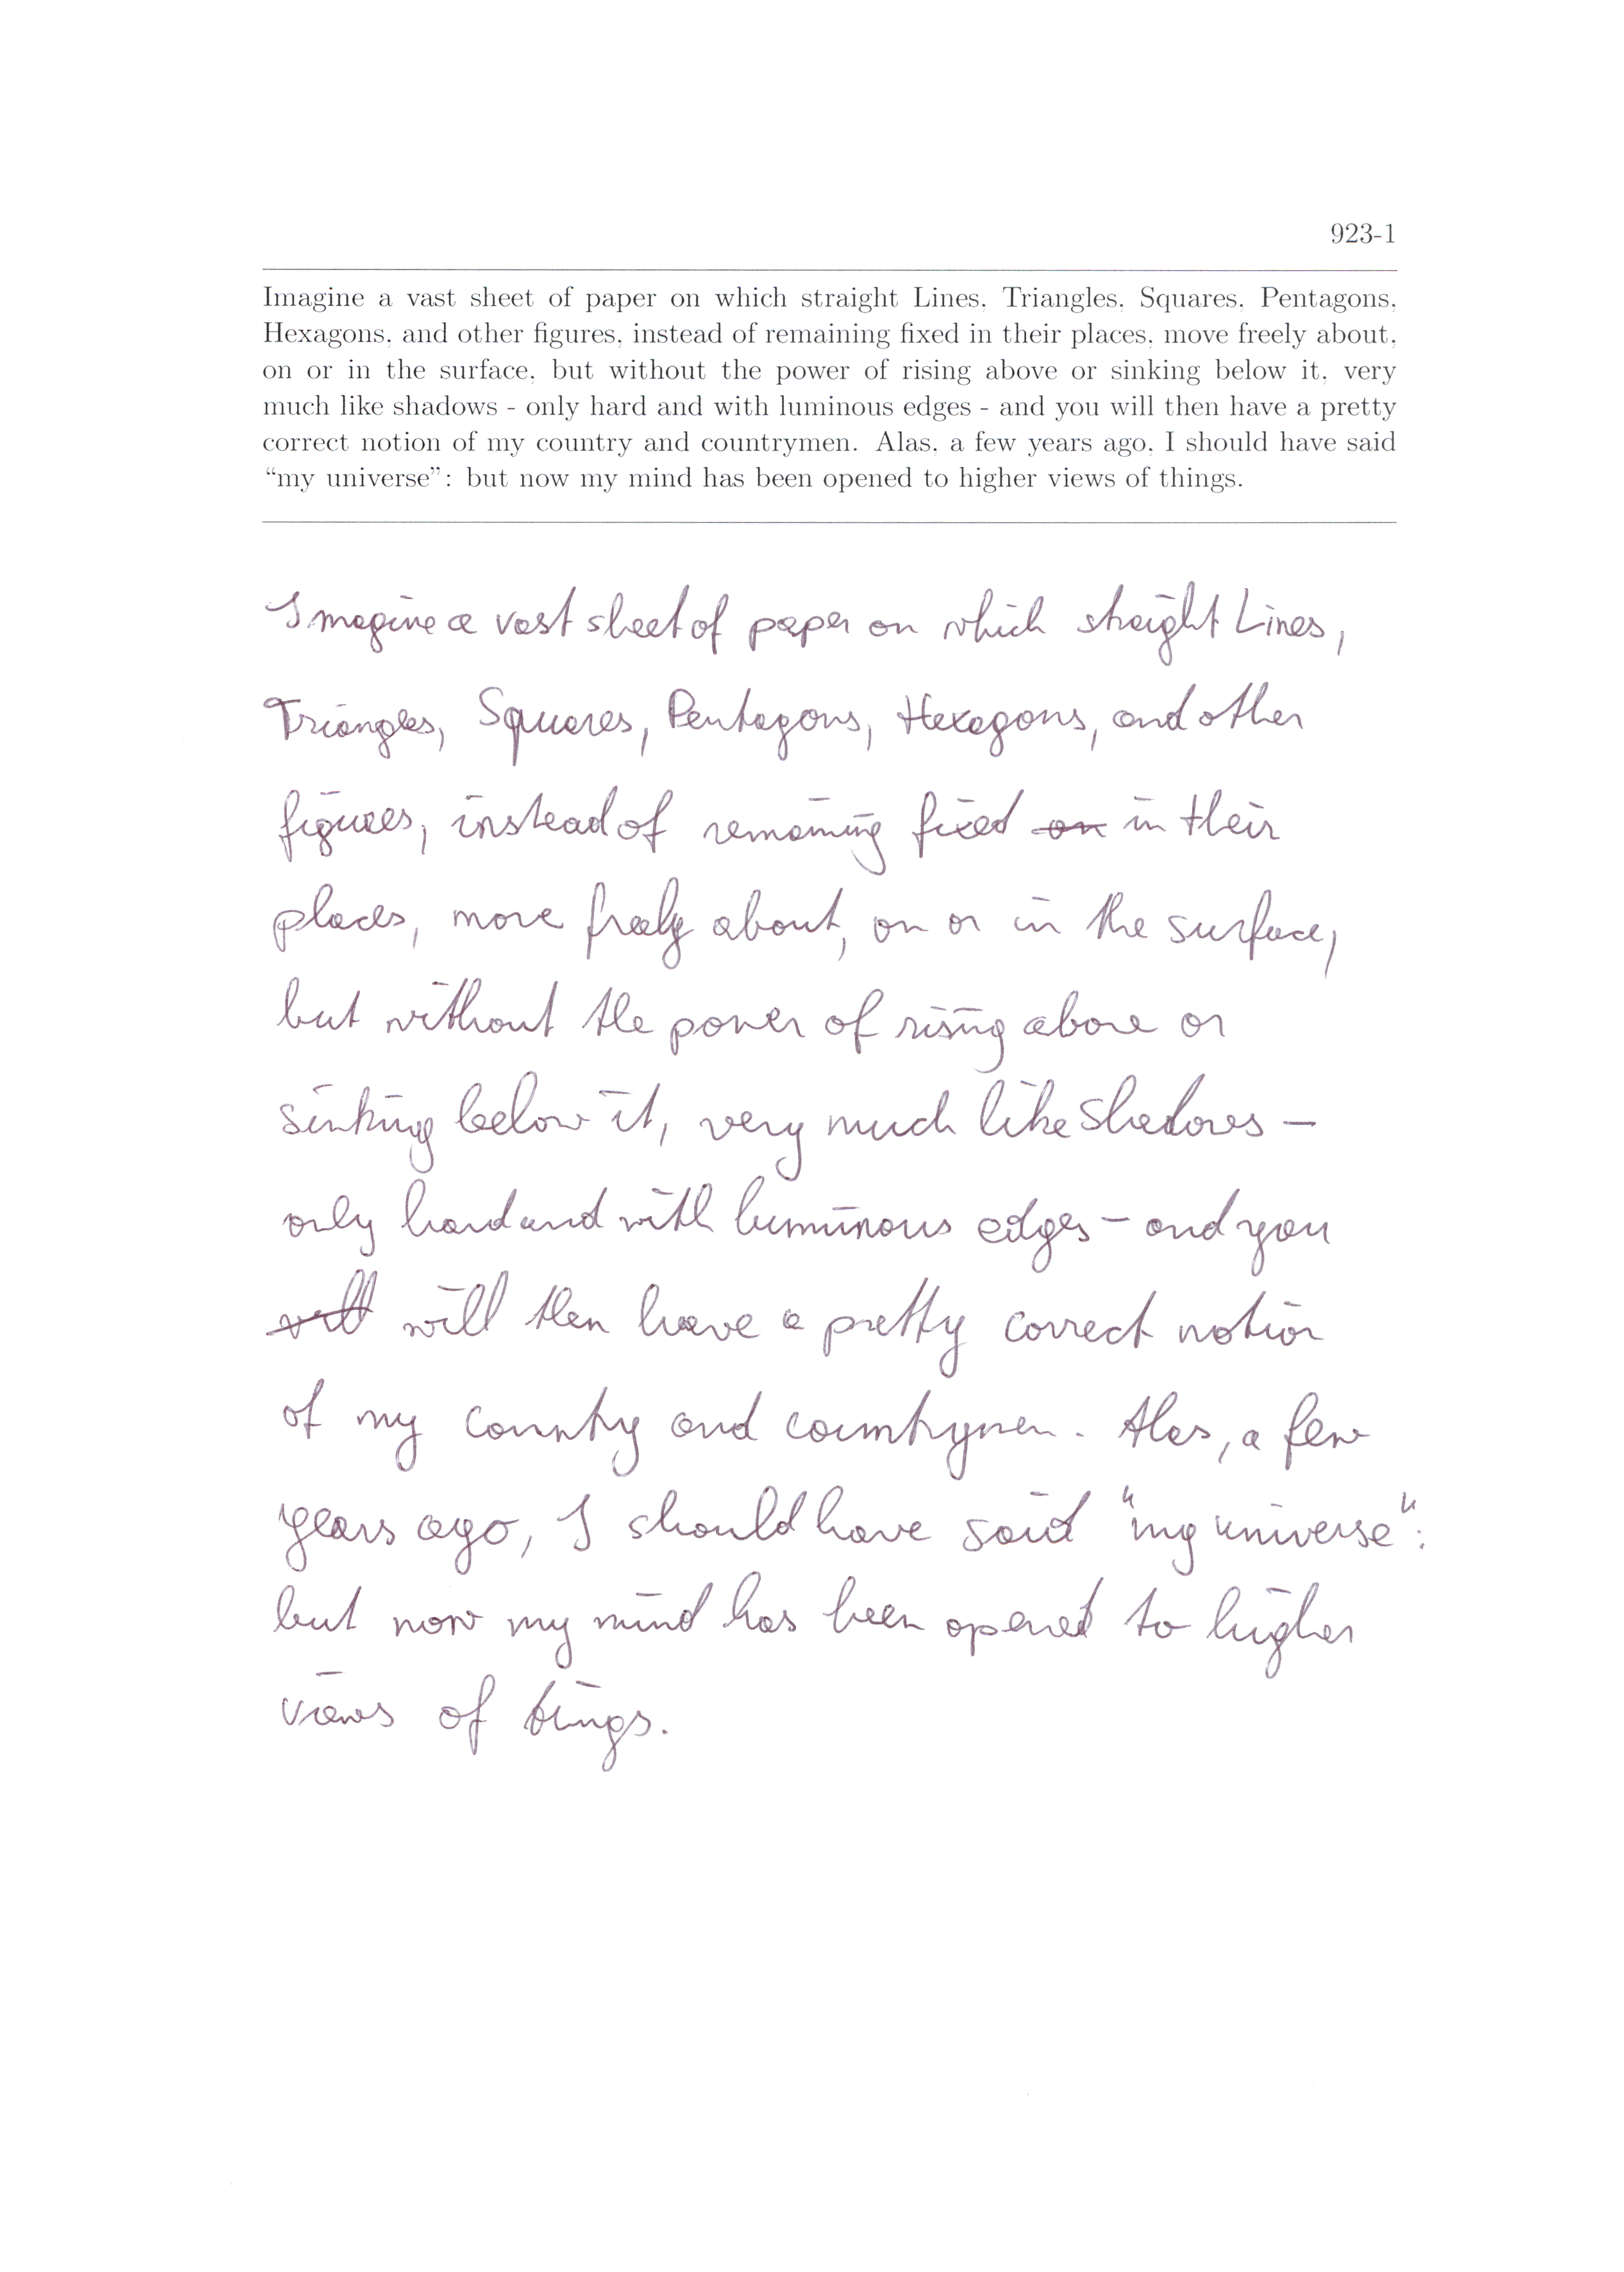 923-1
Imagine a vast sheet of paper on which straight Lines, Triangles, Squares, Pentagons,
Hexagons, and other figures, instead of remaining fixed in their places, move freely about,
on or in the surface, but without the power of rising above or sinking below it, very
much like shadows - only hard and with luminous edges - and you will then have a pretty
correct notion of my country and countrymen. Alas, a few years ago, I should have said
“my universe”: but now my mind has been opened to higher views of things.
Imagine a vast sheet of paper on which straight Lines,
Triangles, Squares, Pentagons, Hexagons, and other
figures, instead of remaining fixed on in their
places, move freely about, on or in the surface,
but without the power of rising above or
sinking below it, very much like shadows –
only hard and with luminous edges – and you
will will then have a pretty correct notion
of my country and countrymen. Alas, a few
years ago, I should have said "my universe":
but now my mind has been opened to higher
views of tings.